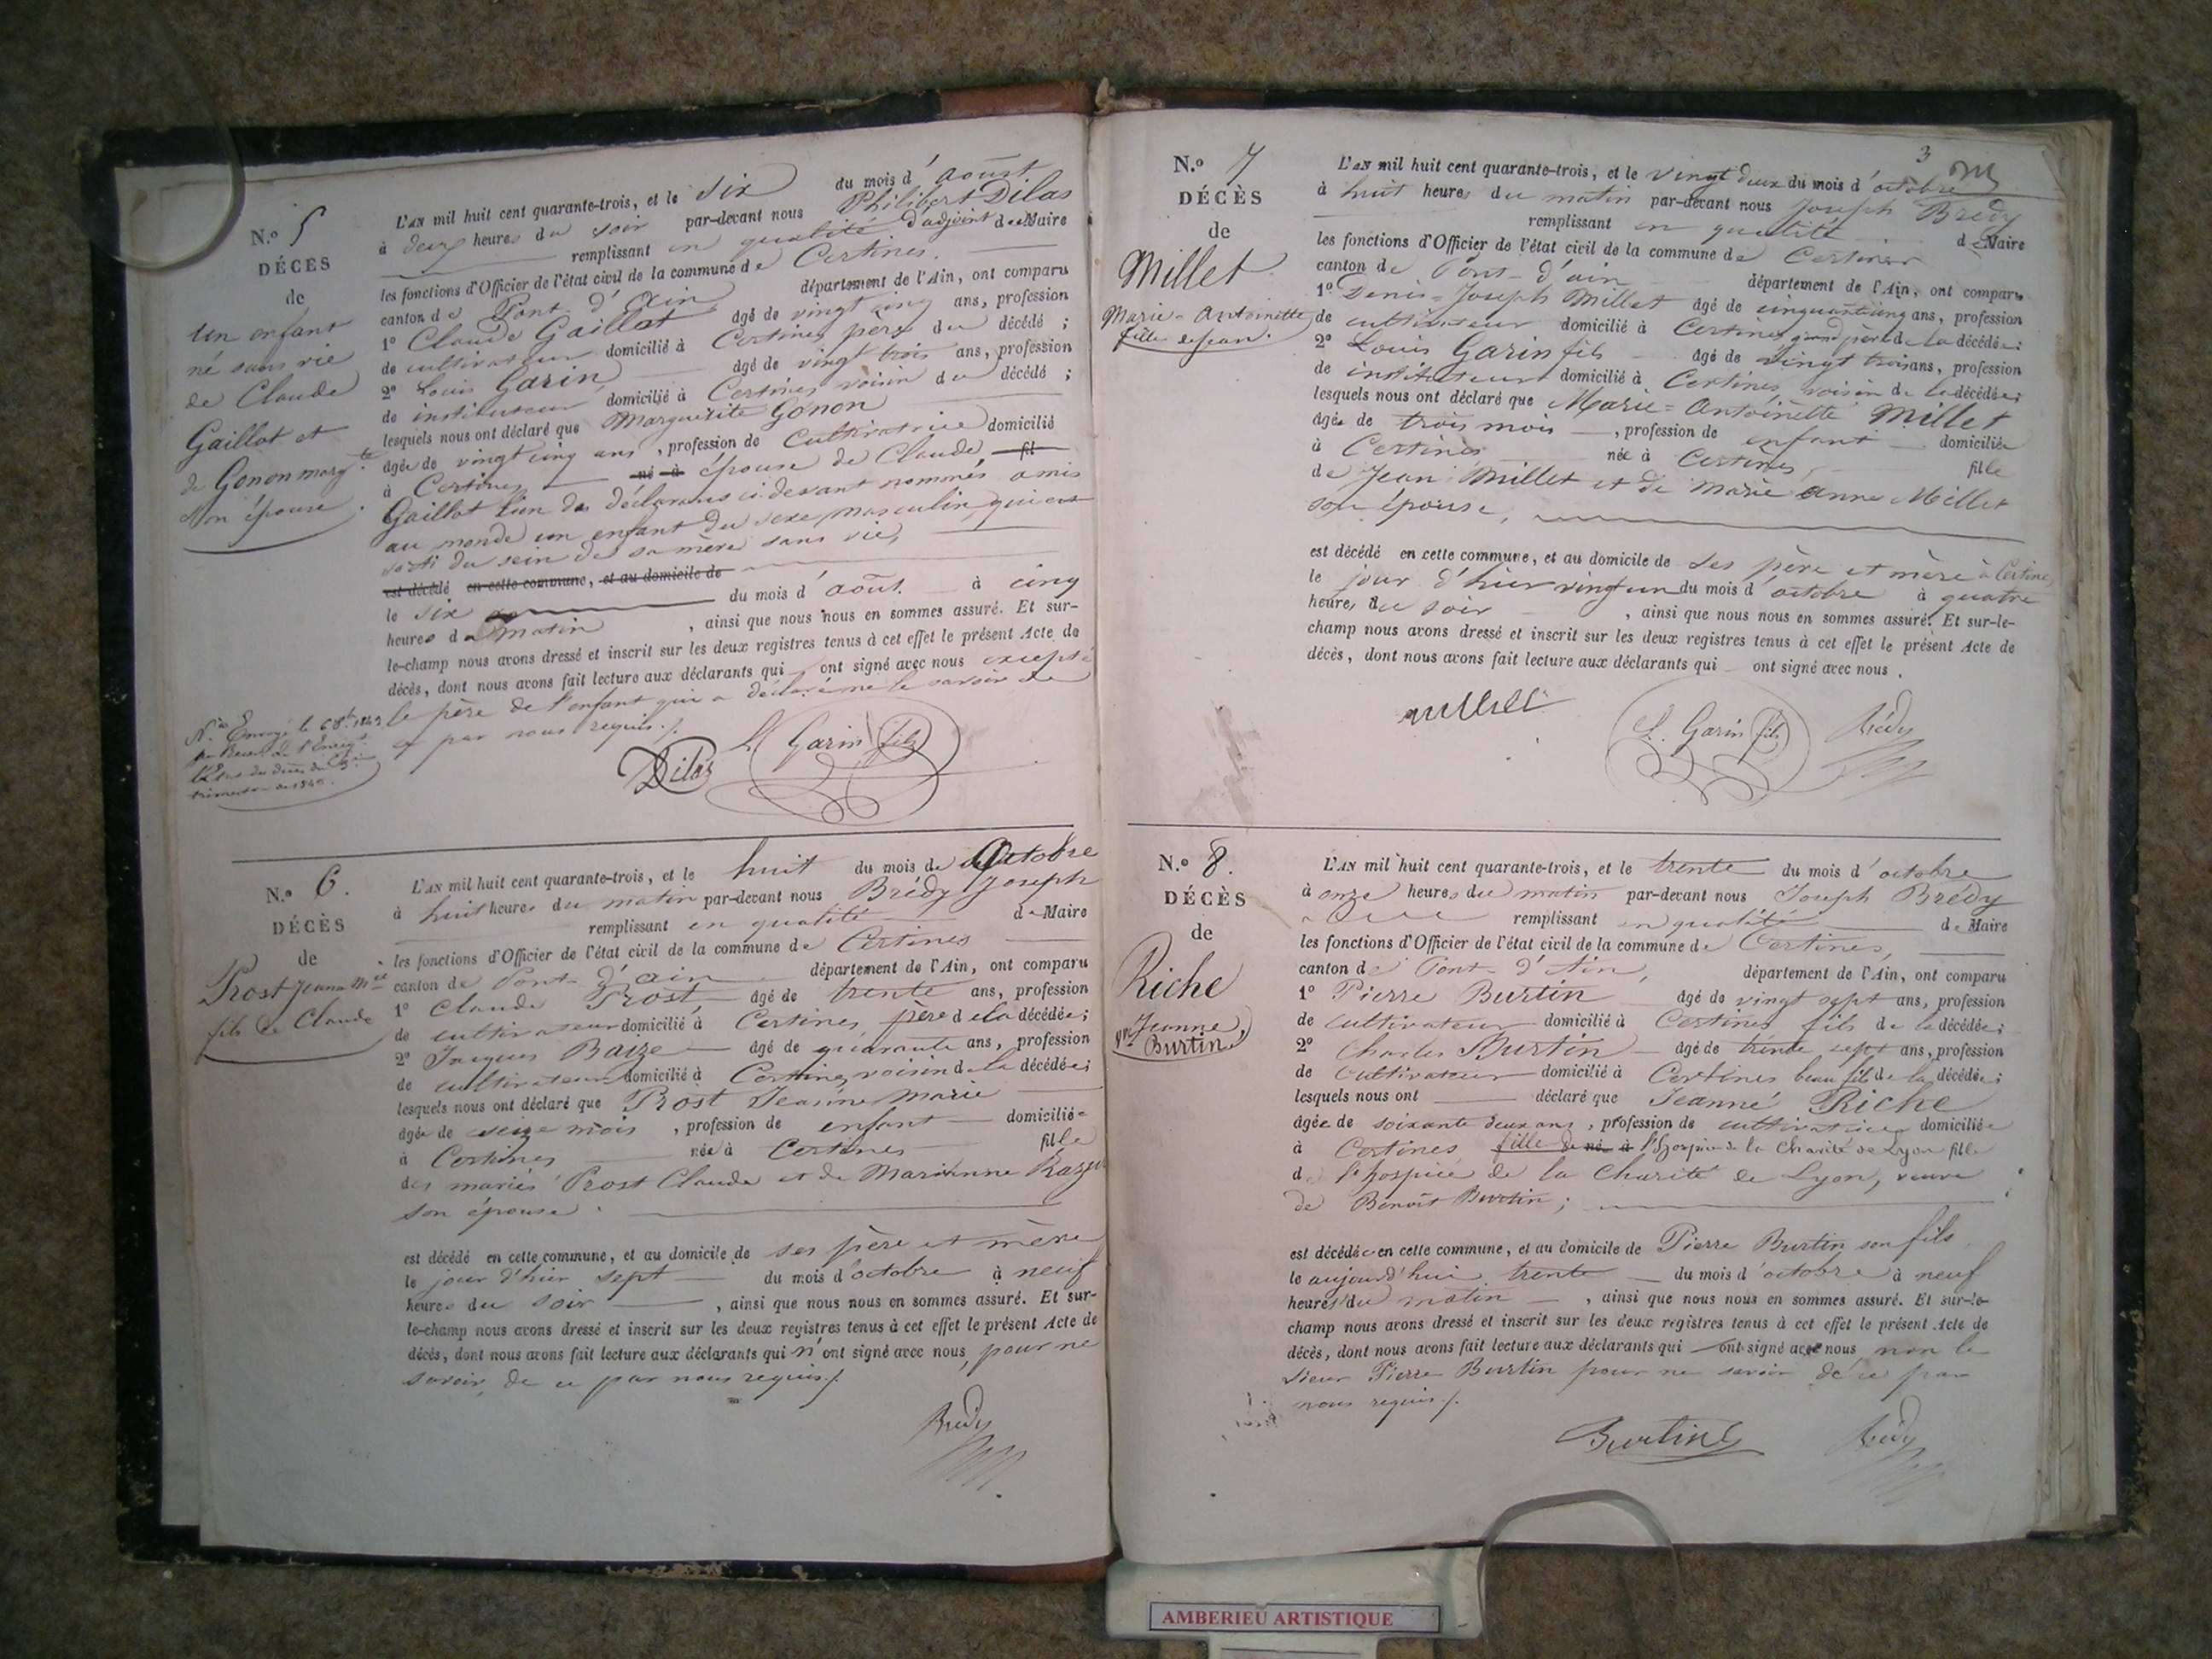 N.º 5
DÉCES
de
Un enfant
né sans vie
de Claude
Gaillot et
de Gonon marg.te
son épouse.
L'AN mil huit cent quarante-trois, et le six du mois d'août
à deux heures du soir par-devant nous Philibert Dilas
remplissant en qualité d'adjoint de Maire
les fonctions d'Officier de l'état civil de la commune de Certines.
canton de Pont-d'ain département de l'Ain, ont comparu
1º Claude Gaillot âgé de vingt cinq ans, profession
de cultivateur domicilié à Certines père du décédé ;
2º Louis Garin âgé de vingt trois ans, profession
de instituteur domicilié à Certines voisin du décédé ;
lesquels nous ont déclaré que Marguerite Gonon
âgée de vingt cinq ans, profession de Cultivatrice domicilié
à Certines né à épouse de Claude fil
Gaillot l'un des déclarans ci devant nommés a mis
au monde un enfant du sexe masculin, qui est
sorti du sein de sa mère sans vie,
est décédé en cette commune, et au domicile de
le six du mois d'août. à cinq
heures du matin, ainsi que nous nous en sommes assuré. Et sur-
le-champ nous avons dressé et inscrit sur les deux registres tenus à cet effet le présent Acte de
décès, dont nous avons fait lecture aux déclarants qui ont signé avec nous excepté
le père de l'enfant qui a déclaré ne le savoir de
ce par nous requis ./.
Dilas L. Garin fils
N.º 6.
DÉCÈS
de
Prost Jeanne M.ie
fille de Claude
L'AN mil huit cent quarante-trois, et le huit du mois de Octobre
à huit heures du matin par-devant nous Brédy Joseph
remplissant en qualité de Maire
les fonctions d'Officier de l'état civil de la commune de Certines
canton de Pont-d'ain département de l'Ain, ont comparu
1º Claude Prost, âgé de trente ans, profession
de cultivateur domicilié à Certines, père de la décédée ;
2º Jacques Baize âgé de quarante ans, profession
de cultivateur domicilié à Certines, voisin de la décédée ;
lesquels nous ont déclaré que Prost Jeanne Marie
âgée de seize mois, profession de enfant domiciliée
à Certines née à Certines fille
des mariés Prost Claude et de Marianne
son épouse.
est décédé en cette commune, et au domicile de ses père et mère
le jour d'hier sept du mois d'octobre à neuf
heures du soir, ainsi que nous nous en sommes assuré. Et sur-
le-champ nous avons dressé et inscrit sur les deux registres tenus à cet effet le présent Acte de
décès, dont nous avons fait lecture aux déclarants qui n'ont signé avec nous, pour ne
savoir, de ce par nous requis ./.
Brédy
3
N.º 7
DÉCÈS
de
Millet
Marie-Antoinette
fille de Jean.
L'AN mil huit cent quarante-trois, et le vingt deux du mois d'octobre
à huit heures du matin par-devant nous Joseph Brédy
remplissant en qualité de Maire
les fonctions d'Officier de l'état civil de la commune de Certines
canton de Pont-d'ain département de l'Ain, ont comparu
1º Denis-Joseph Millet âgé de cinquante cinq ans, profession
de cultivateur domicilié à Certines, grand père de la décédée ;
2º Louis Garin fils âgé de vingt trois ans, profession
de instituteur domicilié à Certines, voisin de la décédée ;
lesquels nous ont déclaré que Marie-Antoinette Millet
âgée de trois mois, profession de enfant domiciliée
à Certines née à Certines, fille
de Jean Millet et de Marie Anne Millet
son épouse,
est décédé en cette commune, et au domicile de ses père et mère à Certines
le jour d'hier vingt un du mois d'octobre à quatre
heures du soir, ainsi que nous nous en sommes assuré. Et sur-le-
champ nous avons dressé et inscrit sur les deux registres tenus à cet effet le présent Acte de
décès, dont nous avons fait lecture aux déclarants qui ont signé avec nous.
Millet L. Garin fils Brédy
N.º 8.
DÉCÈS
de
Riche
Jeanne,
v.ve Burtin
L'AN mil huit cent quarante-trois, et le trente du mois d'octobre
à onze heures du matin par-devant nous Joseph Brédy
remplissant en qualité de Maire
les fonctions d'Officier de l'état civil de la commune de Certines,
canton de Pont-d'Ain, département de l'Ain, ont comparu
1º Pierre Burtin âgé de vingt sept ans, profession
de cultivateur domicilié à Certines fils de la décédée ;
2º Charles Burtin âgé de trente sept ans, profession
de Cultivateur domicilié à Certines beau fils de la décédée ;
lesquels nous ont déclaré que Jeanne Riche
âgée de soixante deux ans, profession de cultivatrice domiciliée
à Certines, fille de né à l'hospice de la Charité de Lyon fille
de l'hospice de la Charité de Lyon, veuve
de Benoît Burtin ;
est décédée en cette commune, et au domicile de Pierre Burtin son fils
le aujourd'hui trente du mois d'octobre à neuf
heures du matin, ainsi que nous nous en sommes assuré. Et sur-le-
champ nous avons dressé et inscrit sur les deux registres tenus à cet effet le présent Acte de
décès, dont nous avons fait lecture aux déclarants qui ont signé avec nous non le
sieur Pierre Burtin pour ne savoir de ce par
nous requis ./.
Burtin Brédy
AMBERIEU ARTISTIQUE